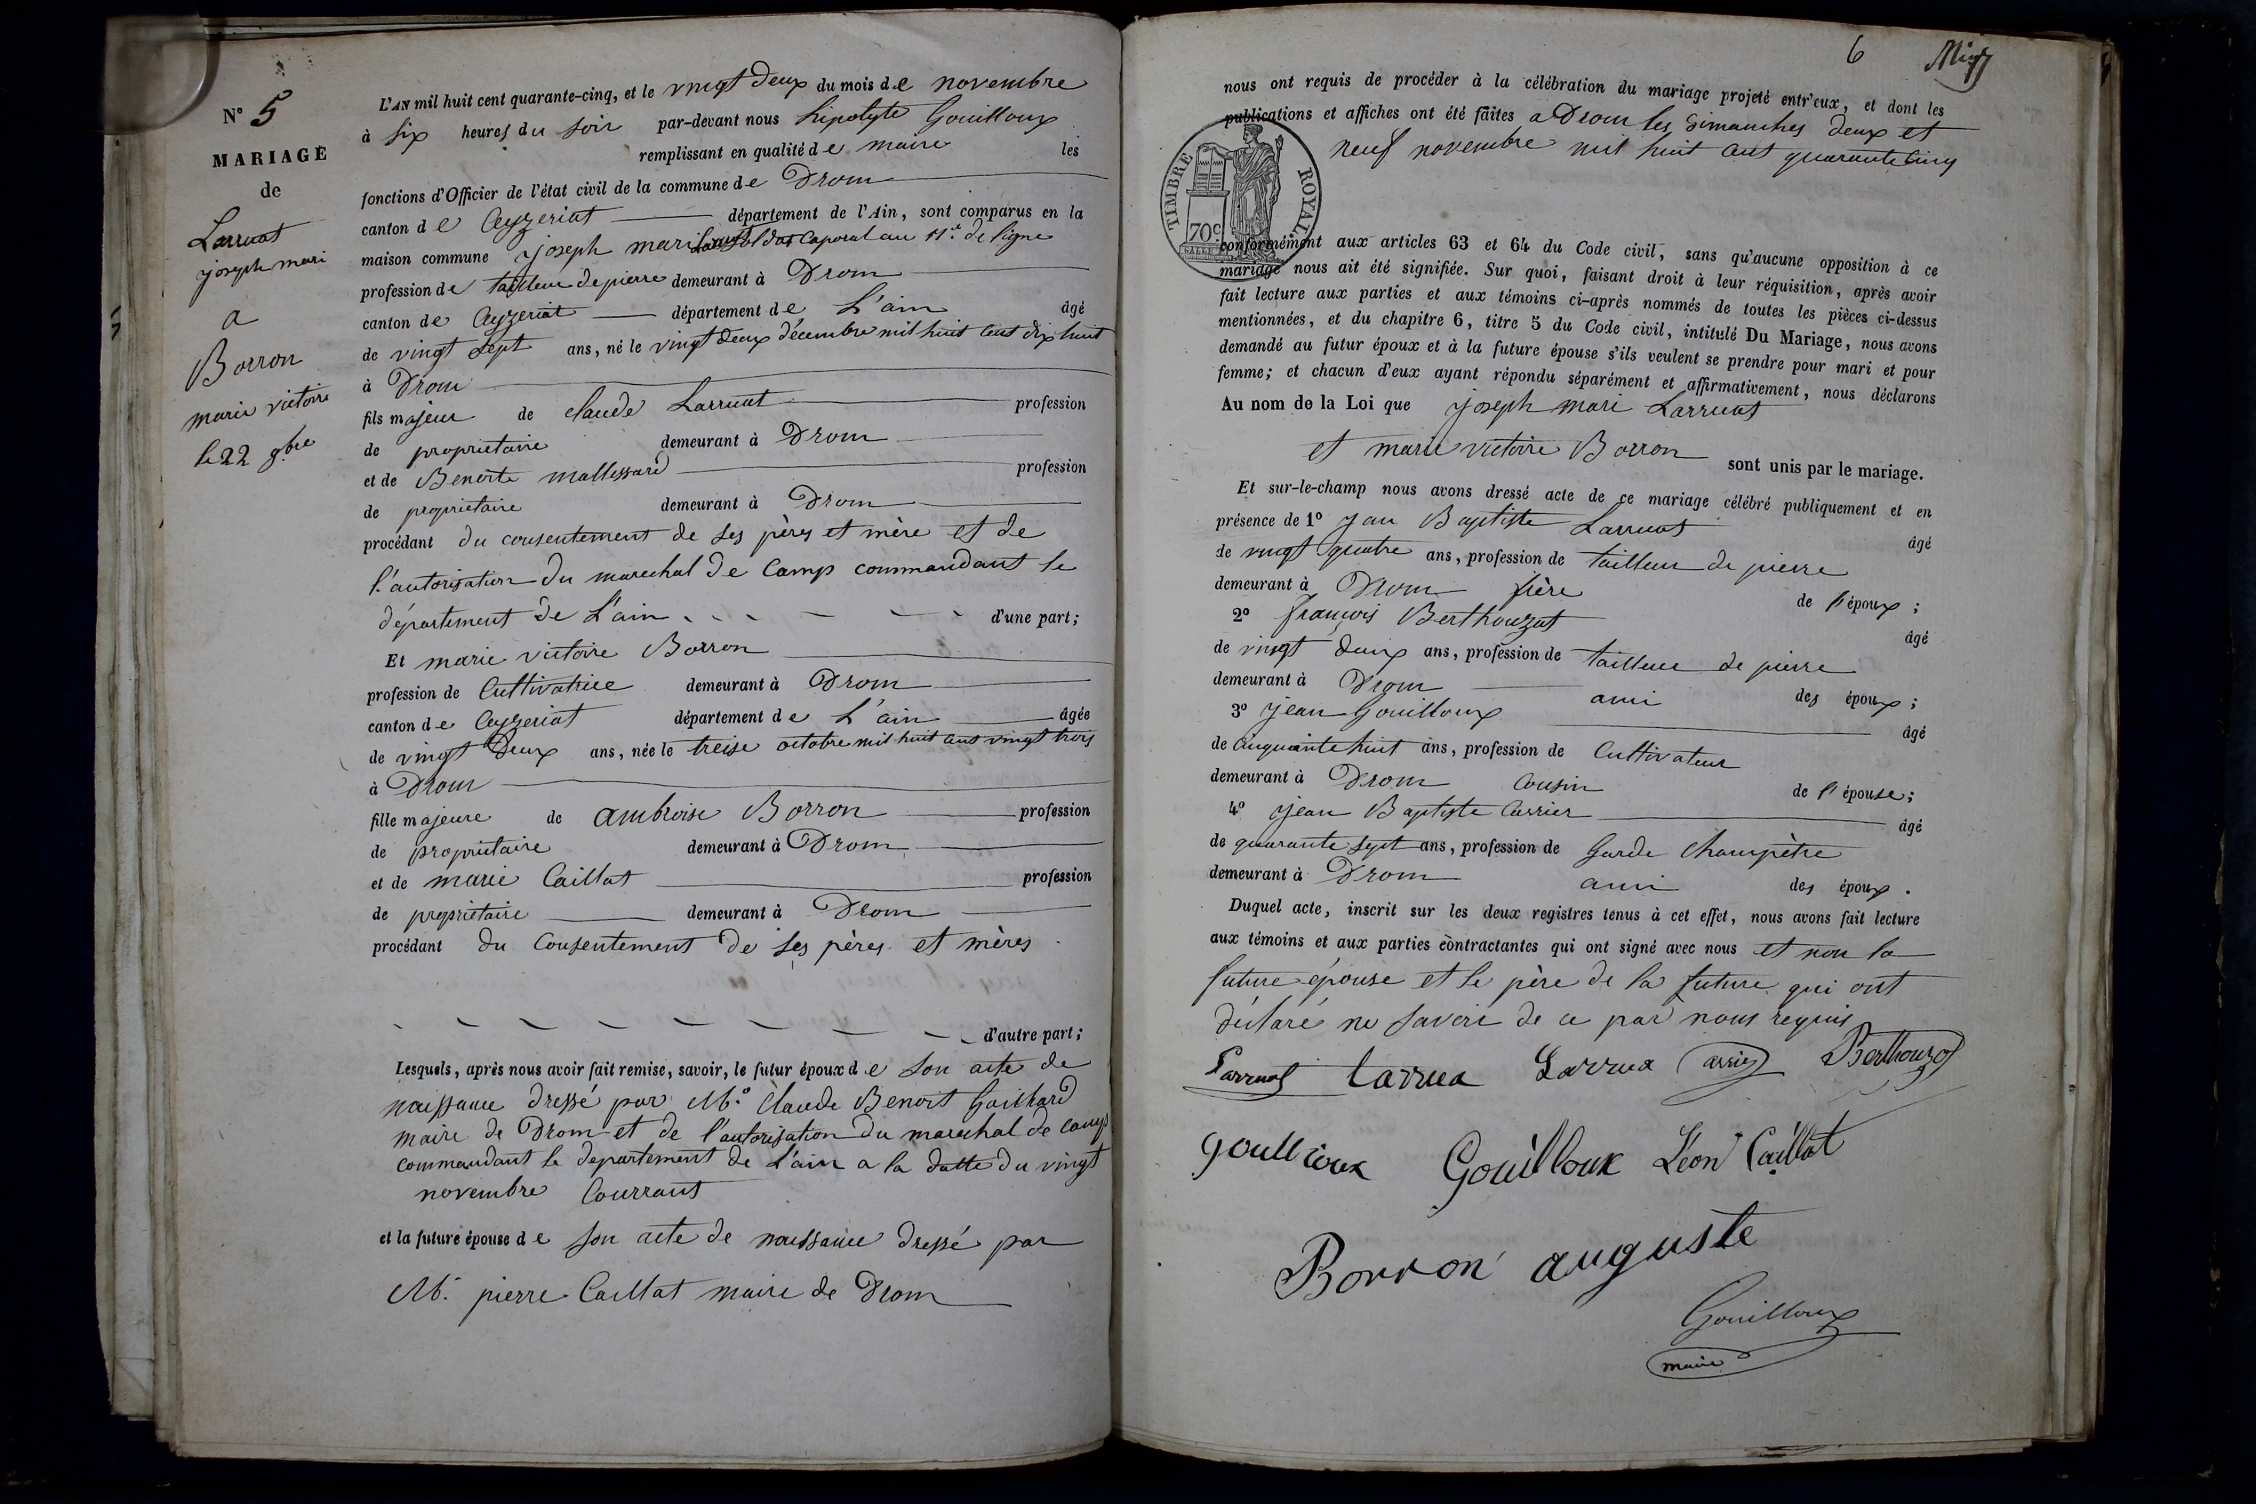 N° 5
MARIAGE
de
Larruat
joseph mari
a
Borron
marie victoire
le 22 9bre
L'AN mil huit cent quarante-cinq, et le vingt deux du mois de novembre
à six heures du soir par-devant nous hipolyte Gouilloux
remplissant en qualité de maire les
fonctions d'Officier de l'état civil de la commune de Drom
canton de Ceyzeriat département de l'Ain, sont comparus en la
maison commune joseph mari Larruat soldat Caporal au 11e de ligne
profession de tailleur de pierre demeurant à Drom
canton de Ceyzeriat département de L'ain âgé
de vingt sept ans, né le vingt deux décembre mil huit cent dix huit
à Drom
fils majeur de claude Larruat profession
de proprietaire demeurant à Drom
et de Benoite mallessard profession
de proprietaire demeurant à Drom
procédant du consentement de ses pères et mère et de
l'autorisation du marechal de Camp commandant le
département de L'ain d'une part;
Et marie victoire Borron
profession de Cultivatrice demeurant à Drom
canton de Ceyzeriat département de L'ain âgée
de vingt deux ans, née le treise octobre mil huit cent vingt trois
à Drom
fille majeure de ambroise Borron profession
de proprietaire demeurant à Drom
et de marie Caillat profession
de proprietaire demeurant à Drom
procédant du Consentement de ses pères et mères
d'autre part;
Lesquels, après nous avoir fait remise, savoir, le futur époux de son acte de
naissance dressé par Mr Claude Benoit Gaillard
maire de Drom et de l'autorisation du marechal de camp
commandant le departement de L'ain a la datte du vingt
novembre Courrant
et la future épouse de son acte de naissance dressé par
Mr pierre Caillat maire de Drom
6
nous ont requis de procéder à la célébration du mariage projeté entr'eux, et dont les
publications et affiches ont été faites a Drom les Dimanches deux et
neuf novembre mil huit cent quarante cinq
TIMBRE ROYAL
70c
conformément aux articles 63 et 64 du Code civil, sans qu'aucune opposition à ce
mariage nous ait été signifiée. Sur quoi, faisant droit à leur réquisition, après avoir
fait lecture aux parties et aux témoins ci-après nommés de toutes les pièces ci-dessus
mentionnées, et du chapitre 6, titre 5 du Code civil, intitulé Du Mariage, nous avons
demandé au futur époux et à la future épouse s'ils veulent se prendre pour mari et pour
femme; et chacun d'eux ayant répondu séparément et affirmativement, nous déclarons
Au nom de la Loi que joseph mari Larruat
et marie victoire Borron sont unis par le mariage.
Et sur-le-champ nous avons dressé acte de ce mariage célébré publiquement et en
présence de 1° jean Baptiste Larruat âgé
de vingt quatre ans, profession de tailleur de pierre
demeurant à Drom frère de l'époux;
2° françois Berthouzat âgé
de vingt deux ans, profession de tailleur de pierre
demeurant à Drom ami des époux;
3° jean Gouilloux âgé
de cinquante huit ans, profession de Cultivateur
demeurant à Drom cousin de l'épouse;
4° jean Baptiste Carrier âgé
de quarante sept ans, profession de Garde Champètre
demeurant à Drom ami des époux.
Duquel acte, inscrit sur les deux registres tenus à cet effet, nous avons fait lecture
aux témoins et aux parties contractantes qui ont signé avec nous et non la
future épouse et le père de la future qui ont
déclaré ne savoir de ce par nous requis
Larruat Larrua Larrua Berthouzat
Gouilloux Gouilloux Léon Caillat
Borron auguste
Gouilloux
maire